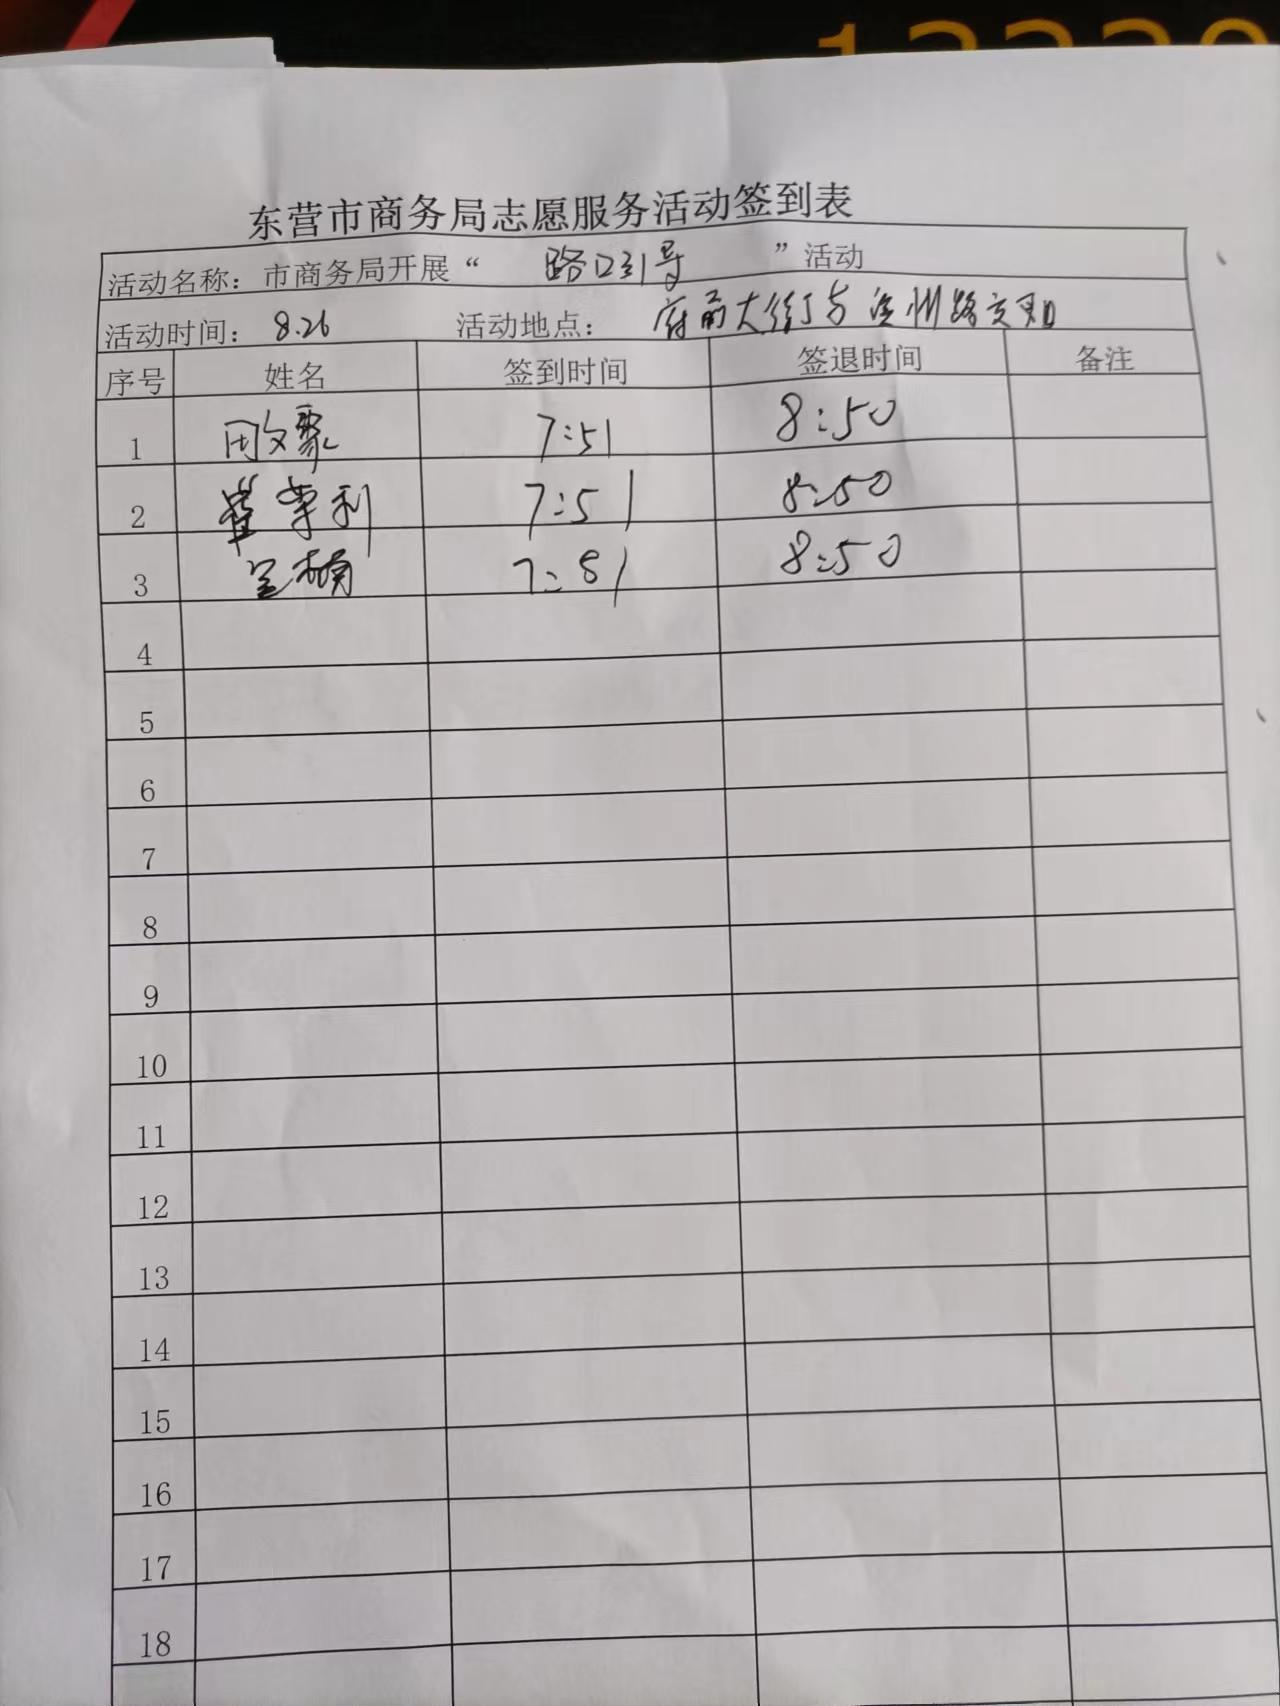 东营市商务局志愿服务活动签到表
活动名称：市商务局开展“ 路口引导 ”活动
活动时间：8.26 活动地点：府前大街与 州路交
序号 姓名 签到时间 签退时间 备注
1 田文聚 7:51 8:50
2 利 7:51 8:50
3 楠 7:51 8:50
4
5
6
7
8
9
10
11
12
13
14
15
16
17
18